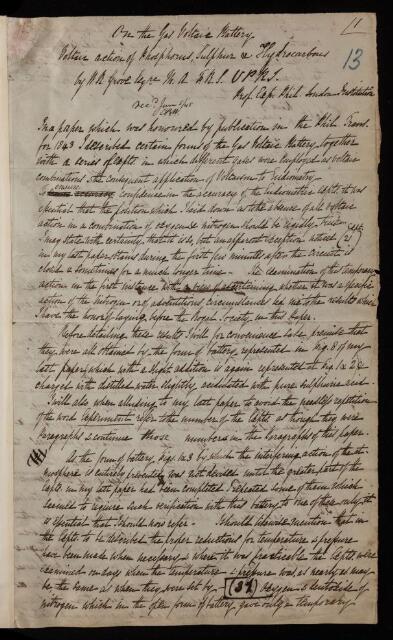 1
13
On the Gas Voltaic Battery.
Voltaic action of Phosphorus, Sulphur & Hydrocarbons
by W R Grove Esqre M A F.R.S. V P R S.
Prof. Exp. Phil. London Institution
In a paper which was honoured by publication in the Phil. Trans.
for 1843 I described certain forms of the Gas Voltaic Battery together
with a series of expts in which different gases were employed as Voltaic
combinations & the consequent application of Voltaism to Eudiometry.
To ensure confidence in the accuracy of the Eudiometric expts it was
essential that the position which I laid down as to the absence of all Voltaic
action in a combination of oxygen & nitrogen should be rigidly true
I may state with certainty, that it is so, but an apparent exception noticed
in my last paper obtains during the first few minutes after the circuit is
closed & sometimes for a much longer time - The elimination of the temporary
action in the first instance with whether it was a specific
action of the nitrogen or of adventitious circumstances led me to the results which
I have the honor of laying before the Royal Society in this paper.
Before detailing these results I will for convenience sake premise that
they were all obtained by the form of battery represented in Fig. 8 of my
last paper which with a short addition is again represented at Fig 1 & 2 &
charged with distilled water slightly acidulated with pure sulphuric acid.
I will also when alluding to my last paper to avoid the needless repetition
of the word experiment refer to the number of the expts as though they were
paragraphs & continue those numbers in the paragraphs of this paper.
As the form of battery, Figs by which the interfering action of the at-
mosphere is entirely prevented was not devised until the greater part of the
expts in my last paper had been completed I repeated some of them which
seemed to require such verification with this battery, to one of these only it
is essential that I should now refer - I should likewise mention that in
the expts to be described the proper reductions for temperature & pressure
have been made when necessary & where it was practicable the expts were
examined on days when the temperature & pressure was as nearly as may
be the same as when they were set by - oxygen & deutoxide of
nitrogen which in the open form of battery gave only a temporary